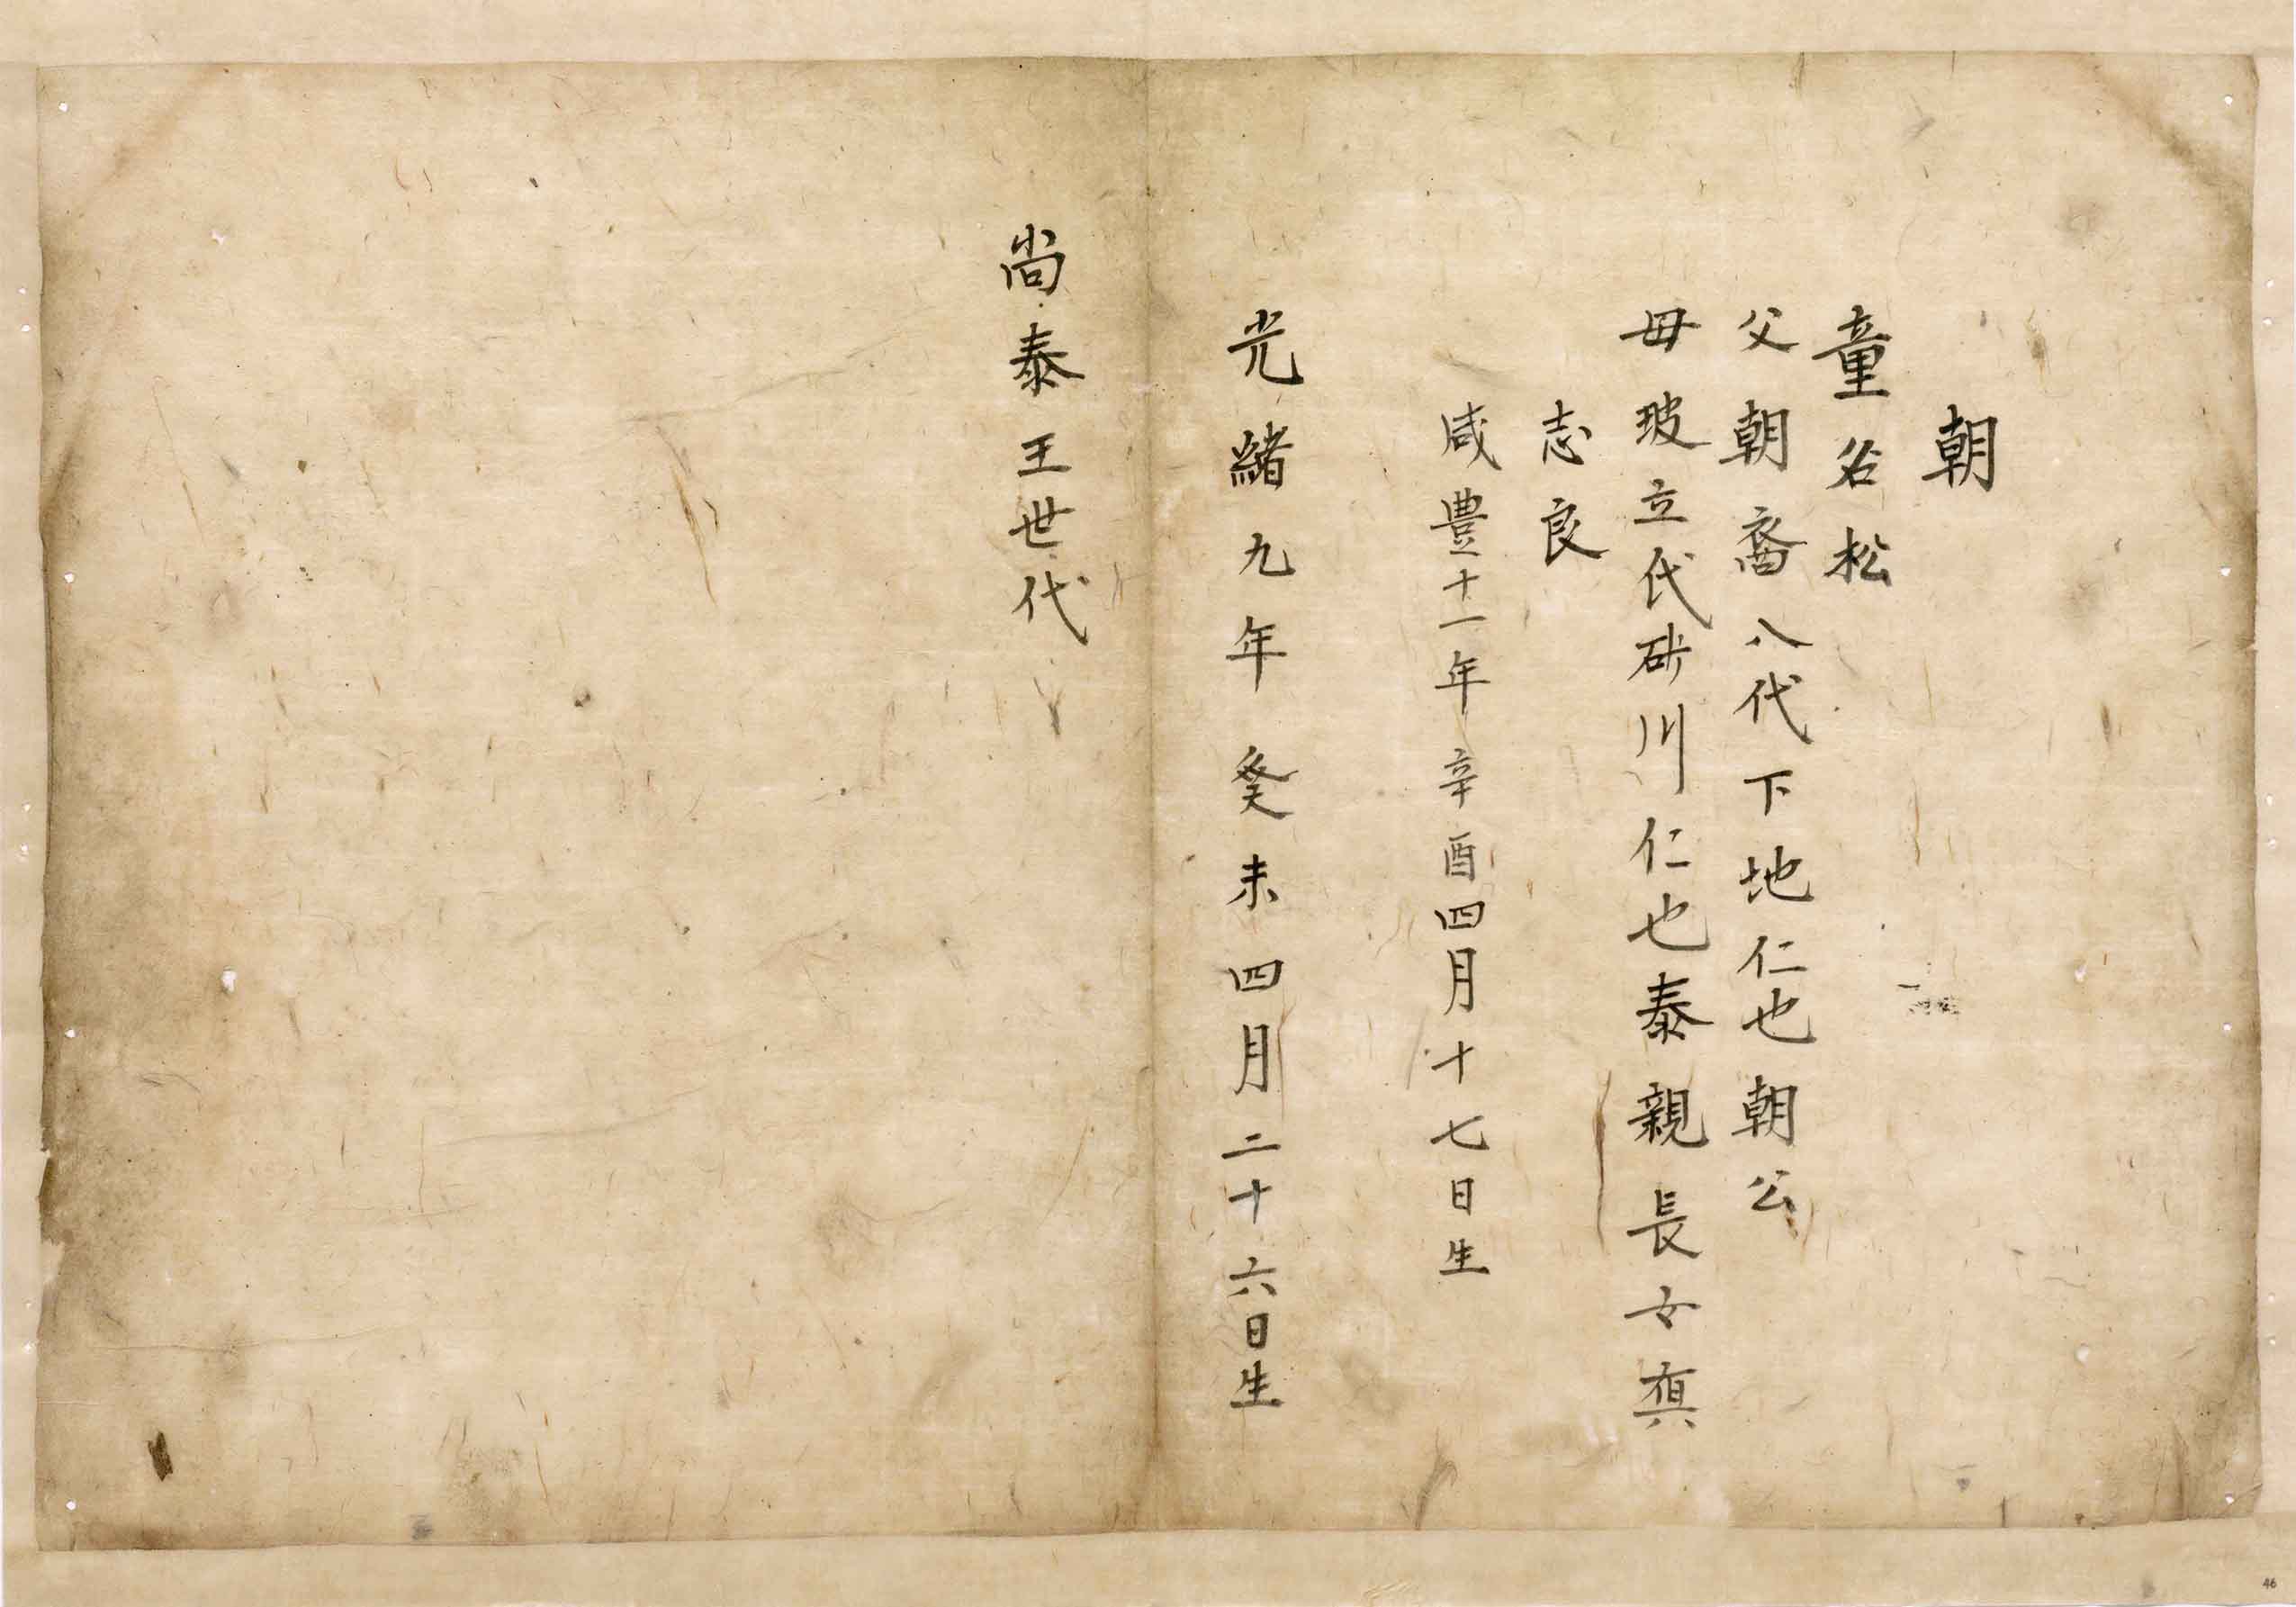 朝
童名松
父朝裔八代下地仁也朝公
母玻立代砕川仁也泰親長女真
志良
咸豊十一年辛酉四月十七日生
光緒九年癸未四月二十六日生
尚泰王世代
46